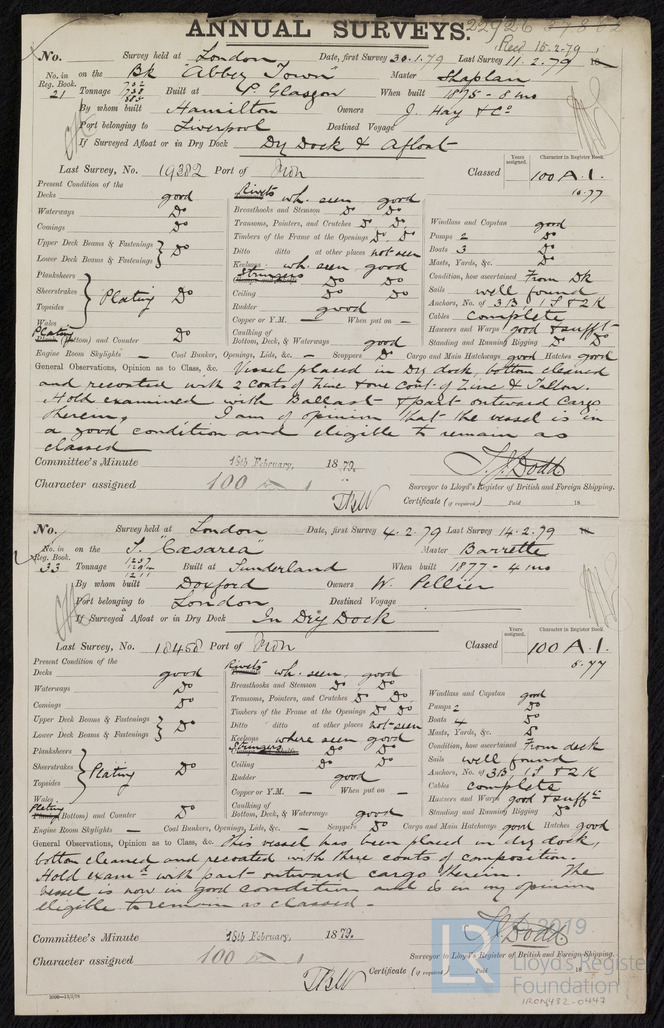 ANNUAL SURVEYS. 22926
Recd 15.2.79
No. Survey held at London Date, first Survey 30.1.79 Last Survey 11.2.79 18
No. in Reg. Book. 21 on the Bk "Abbey Town" Master
Tonnage 738 Built at P. Glasgow When built 1875 - 8 mo
By whom built Hamilton Owners J. Hay & Co
Port belonging to Liverpool Destined Voyage
If Surveyed Afloat or in Dry Dock Dry Dock & Afloat
Last Survey, No. 19382 Port of Iron Classed Years assigned. 100 Character in Register Book. A.1.
10.77
Present Condition of the
Decks good
Waterways Do
Comings Do
Upper Deck Beams & Fastenings
Lower Deck Beams & Fastenings Do
Planksheers
Sheerstrakes
Topsides
Wales
Plating Do
Plating (Bottom) and Counter Do
Rivets wh. seen good
Breasthooks and Stemson Do Do
Transoms, Pointers, and Crutches Do Do
Timbers of the Frame at the Openings Do Do
Ditto ditto at other places not seen
Keelsons wh. seen good
Stringers Do Do
Ceiling Do Do
Rudder good
Copper or Y.M. — When put on —
Caulking of Bottom, Deck, & Waterways good
Windlass and Capstan good
Pumps 2 Do
Boats 3 Do
Masts, Yards, &c. Do
Condition, how ascertained From Dk
Sails well found
Anchors, No. of 3 B 1 S & 2 K
Cables complete
Hawsers and Warps good & sufft
Standing and Running Rigging Do Do
Engine Room Skylights — Coal Bunker, Openings, Lids, &c. — Scuppers Do Cargo and Main Hatchways good Hatches good
General Observations, Opinion as to Class, &c. Vessel placed in Dry dock, bottom cleaned
and recoated with 2 coats of Zinc & one coat of Zinc & Tallow.
Hold examined with Ballast & part outward Cargo
therein. I am of opinion that the vessel is in
a good condition and eligible to remain as
classed
Committee's Minute 18th February, 1879.
Character assigned 100 A 1
Surveyor to Lloyd's Register of British and Foreign Shipping.
Certificate (if required) Paid 18
No. Survey held at London Date, first Survey 4.2.79 Last Survey 14.2.79 18
No. in Reg. Book. 33 on the S. "Cæsarea" Master Barrette
Tonnage 1211 Built at Sunderland When built 1877 - 4 mo
By whom built Doxford Owners W. Pellier
Port belonging to London Destined Voyage
If Surveyed Afloat or in Dry Dock In Dry Dock
Last Survey, No. 18458 Port of Iron Classed Years assigned. 100 Character in Register Book. A.1.
5.77
Present Condition of the
Decks good
Waterways Do
Comings Do
Upper Deck Beams & Fastenings
Lower Deck Beams & Fastenings Do
Planksheers
Sheerstrakes
Topsides
Wales
Plating Do
Plating (Bottom) and Counter Do
Rivets wh. seen good
Breasthooks and Stemson Do Do
Transoms, Pointers, and Crutches Do Do
Timbers of the Frame at the Openings Do Do
Ditto ditto at other places not seen
Keelsons where seen good
Stringers Do Do
Ceiling Do Do
Rudder good
Copper or Y.M. — When put on —
Caulking of Bottom, Deck, & Waterways good
Windlass and Capstan good
Pumps 2 Do
Boats 4 Do
Masts, Yards, &c. Do
Condition, how ascertained From deck
Sails well found
Anchors, No. of 3B 1 S & 2 K
Cables complete
Hawsers and Warps good & sufft
Standing and Running Rigging Do
Engine Room Skylights — Coal Bunkers, Openings, Lids, &c. — Scuppers Do Cargo and Main Hatchways good Hatches good
General Observations, Opinion as to Class, &c. This vessel has been placed in dry dock,
bottom cleaned and recoated with three coats of composition.
Hold examd with part outward cargo therein. The
vessel is now in good condition and is in my opinion
eligible to remain as classed.
Committee's Minute 18th February, 1879.
Character assigned 100 A 1
Surveyor to Lloyd's Register of British and Foreign Shipping.
Certificate (if required) Paid 18
LR © 2019
Lloyd's Register
Foundation
IRON432-0447